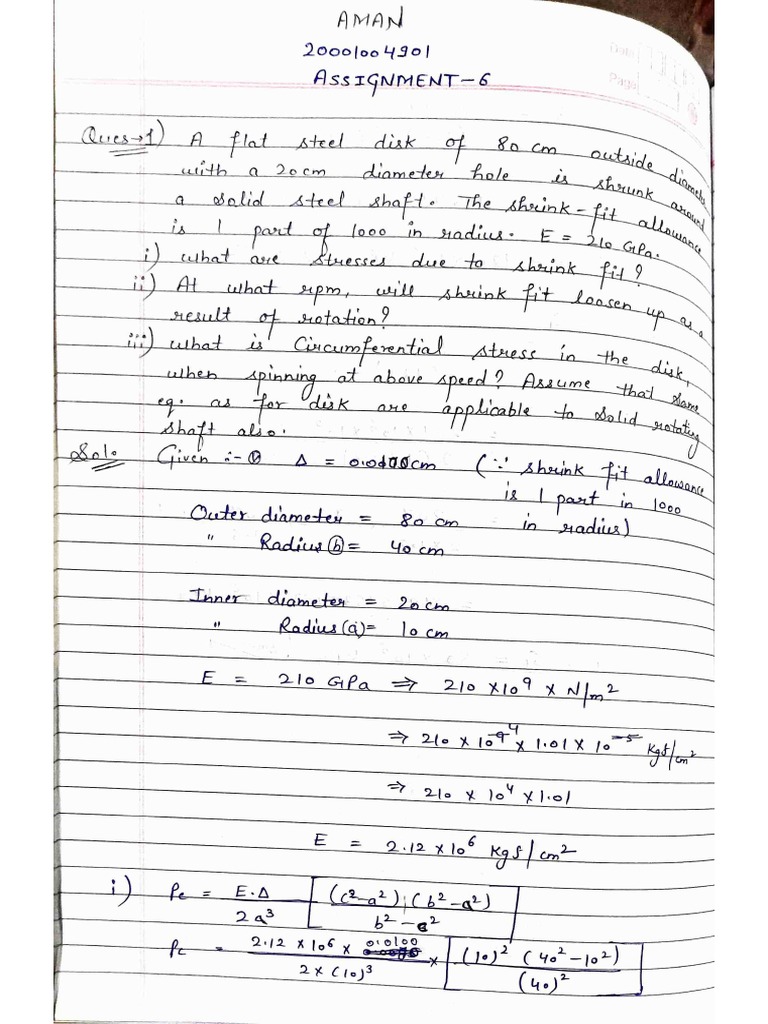 AMAN
20001004901
ASSIGNMENT-6
Date
Page
Ques→1) A flat steel disk of 80 cm outside diameter
with a 20cm diameter hole is shrunk around
a solid steel shaft. The shrink-fit allowance
is 1 part of 1000 in radius. E = 210 GPa.
i) what are stresses due to shrink fit?
ii) At what rpm, will shrink fit loosen up as a
result of rotation?
iii) what is Circumferential stress in the disk,
when spinning at above speed? Assume that same
eq. as for disk are applicable to solid rotating
shaft also.
Sol: Given :- Δ = 0.0100cm (∵ shrink fit allowance
is 1 part in 1000
in radius)
Outer diameter = 80 cm
" Radius (b) = 40 cm
Inner diameter = 20cm
" Radius (a) = 10 cm
E = 210 GPa ⇒ 210 × 10⁹ × N/m²
⇒ 210 × 10⁴ × 1.01 × 10⁻⁵ Kgf/cm²
⇒ 210 × 10⁴ × 1.01
E = 2.12 × 10⁶ Kgf/cm²
i) Pc = E.Δ / 2a³ [(c²-a²) (b²-a²) / b²-c²]
Pc = 2.12 × 10⁶ × 0.0100 / 2 × (10)³ × [(10)² (40² - 10²) / (40)²]